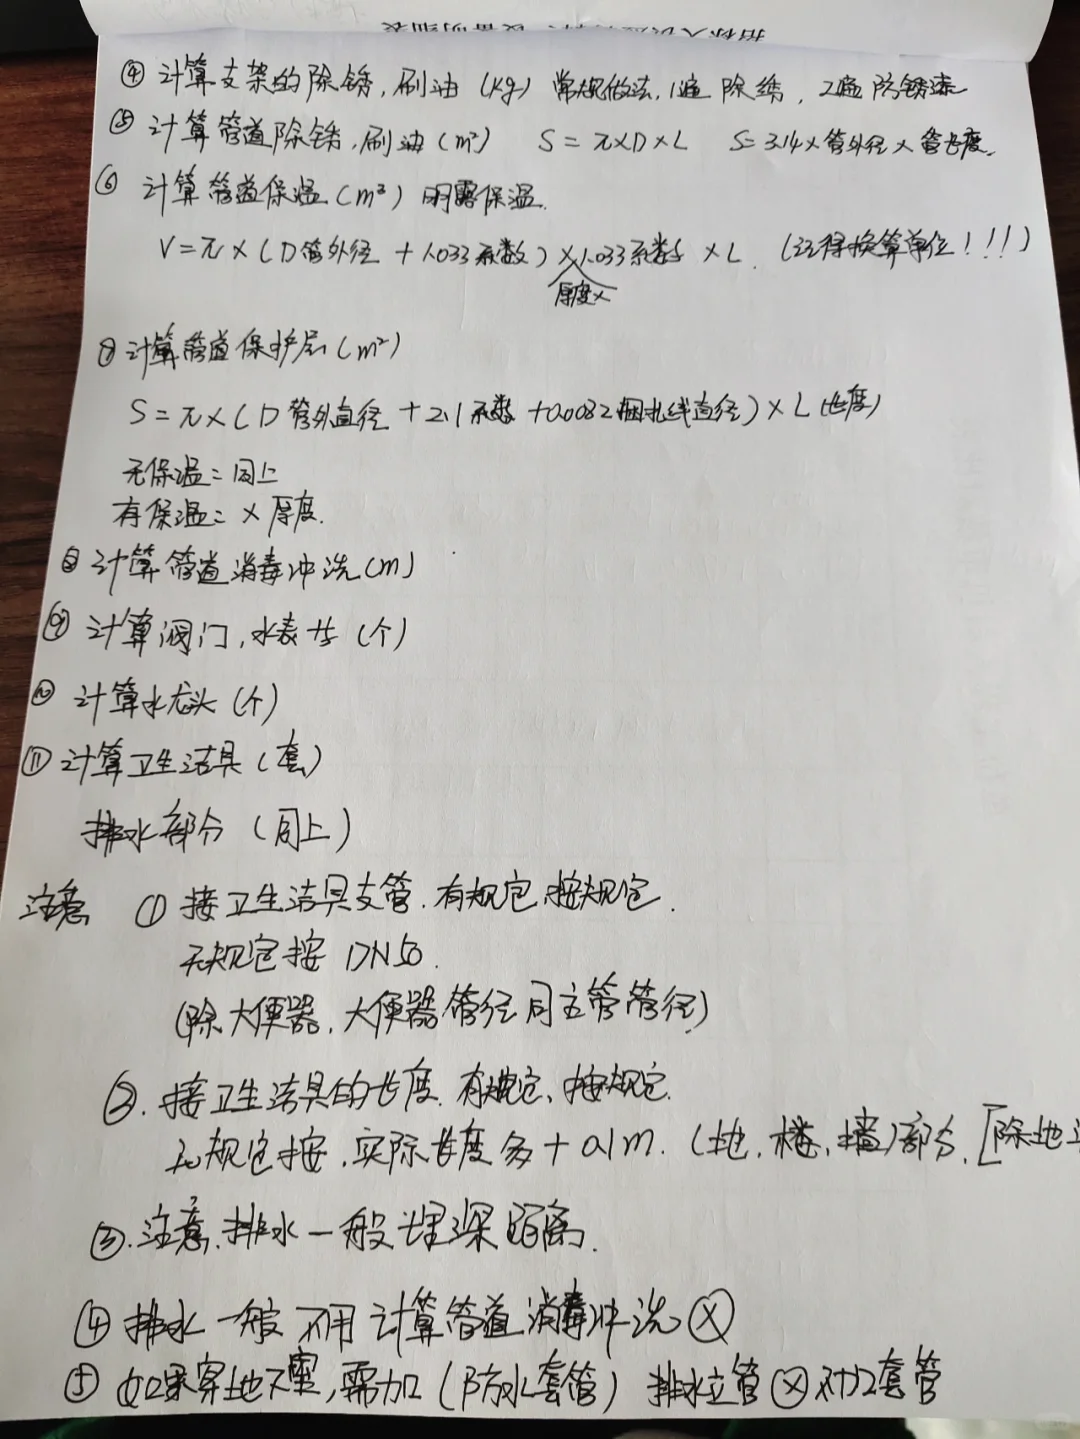 ④ 计算支架的除锈,刷油(kg) 常规做法,1遍除锈,2遍防锈漆
⑤ 计算管道除锈,刷油(m²) S=π×D×L S=3.14×管外径×管长度.
⑥ 计算管道保温(m³) 明露保温.
V=π×(D管外径+1.033系数)×1.033系数×L. (记得换算单位!!!)
厚度×
⑦ 计算管道保护层(m²)
S=π×(D管外直径+2.1系数+0.0082捆扎线直径)×L(长度)
无保温=同上
有保温=×厚度.
⑧ 计算管道消毒冲洗(m)
⑨ 计算阀门,水表 (个)
⑩ 计算水龙头(个)
⑪ 计算卫生洁具(套)
排水部分(同上)
注意 ① 接卫生洁具支管.有规定,按规定.
无规定按DN50.
(除大便器,大便器管径同主管管径)
②.接卫生洁具的长度.有规定、按规定.
无规定按,实际长度多+0.1m.(地,楼,墙)部分.[除地
③.注意,排水一般埋深距离.
④ 排水一般不用计算管道消毒冲洗ⓧ
⑤ 如果穿地下室,需加(防水套管) 排水立管ⓧ 套管